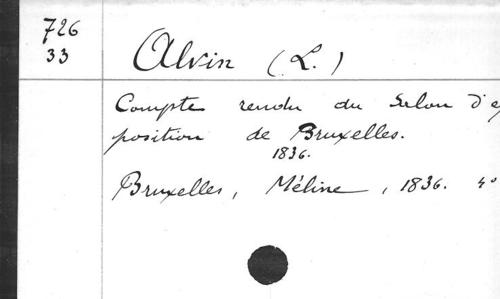 726
33
Alvin (L.)
Compte rendu du Salon d'ex
position de Bruxelles.
1836.
Bruxelles, Méline, 1836. 4°